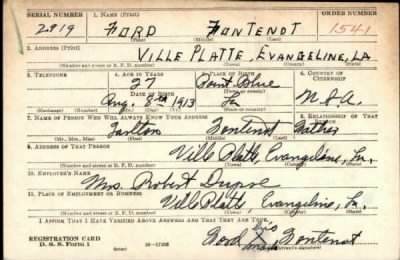 SERIAL NUMBER 1. NAME (Print) ORDER NUMBER
2919 FORD FONTENOT 1541
(First) (Middle) (Last)
2. ADDRESS (Print)
VILLE PLATTE, EVANGELINE, LA
(Number and street or R. F. D. number) (Town) (County) (State)
3. TELEPHONE 4. AGE IN YEARS 5. PLACE OF BIRTH 6. COUNTRY OF CITIZENSHIP
27 Point Blue
DATE OF BIRTH (Town or county)
Aug. 8th 1913 La U.S.A.
(Exchange) (Number) (Mo.) (Day) (Yr.) (State or country)
7. NAME OF PERSON WHO WILL ALWAYS KNOW YOUR ADDRESS 8. RELATIONSHIP OF THAT PERSON
Fontenot Father
(Mr., Mrs., Miss) (First) (Middle) (Last)
9. ADDRESS OF THAT PERSON
Ville Platte, Evangeline, La.
(Number and street or R. F. D. number) (Town) (County) (State)
10. EMPLOYER'S NAME
Mrs. Robert Dupre
11. PLACE OF EMPLOYMENT OR BUSINESS
Ville Platte, Evangeline, La.
(Number and street or R. F. D. number) (Town) (County) (State)
I AFFIRM THAT I HAVE VERIFIED ABOVE ANSWERS AND THAT THEY ARE TRUE.
his
REGISTRATION CARD Ford Fontenot
D. S. S. Form 1 mark
(Registrant's signature)